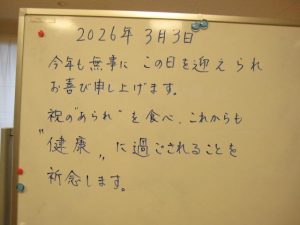 2026年 3月3日
今年も無事に この日を迎えられ
お喜び申し上げます。
祝の"あられ"を食べ、これからも
"健康"に過ごされることを
祈念します。